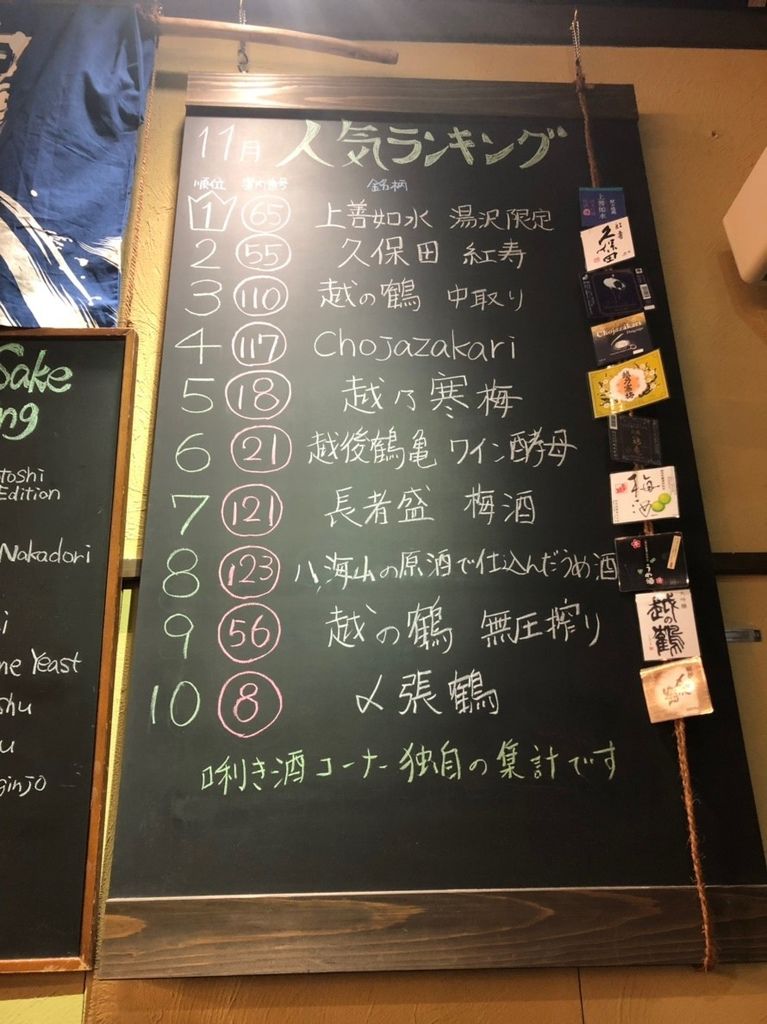 11月 人気ランキング
順位 案内番号 銘柄
1 65 上善如水 湯沢限定
2 55 久保田 紅寿
3 110 越の鶴 中取り
4 117 Chojazakari
5 18 越乃寒梅
6 21 越後鶴亀 ワイン酵母
7 121 長者盛 梅酒
8 123 八海山の原酒で仕込んだうめ酒
9 56 越の鶴 無圧搾り
10 8 〆張鶴
唎き酒コーナー独自の集計です
Sake
ng
toshi
Edition
Nakadori
i
ne Yeast
shu
u
ginjo
上善如水
久保田
紅寿
Chojazakari
越乃寒梅
梅酒
うめ酒
越の鶴